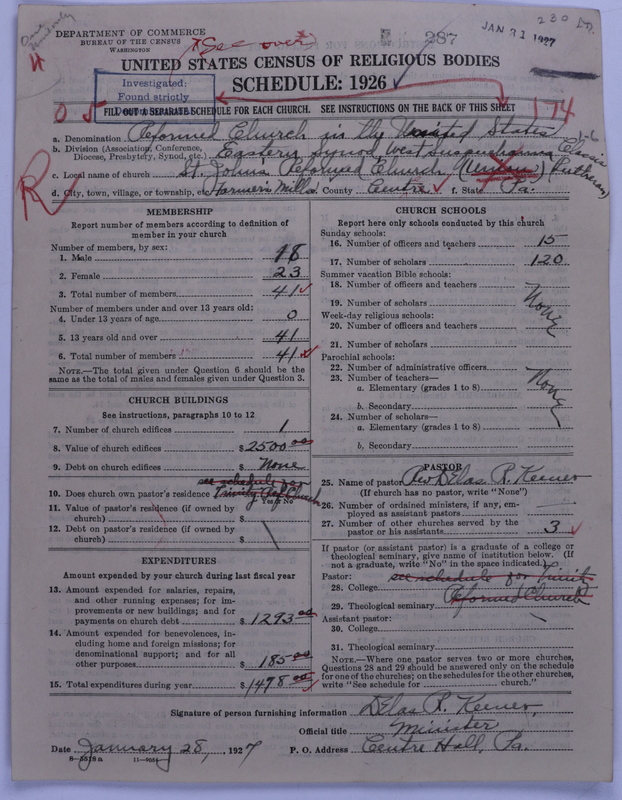 DEPARTMENT OF COMMERCE
BUREAU OF THE CENSUS
WASHINGTON
*(See over)
287
JAN 31 1927
UNITED STATES CENSUS OF RELIGIOUS BODIES
SCHEDULE: 1926
Investigated:
Found strictly
FILL OUT A SEPARATE SCHEDULE FOR EACH CHURCH. SEE INSTRUCTIONS ON THE BACK OF THIS SHEET
05
174
R
a. Denomination Reformed Church in the United States
b. Division (Association, Conference, Diocese, Presbytery, Synod, etc.) Eastern Synod West Susquehanna Classis
c. Local name of church St. John's Reformed Church (Union) (Lutheran)
d. City, town, village, or township, etc. Farmers Mills e. County Centre f. State Pa.
MEMBERSHIP
Report number of members according to definition of
member in your church
Number of members, by sex:
1. Male 18
2. Female 23
3. Total number of members 41
Number of members under and over 13 years old:
4. Under 13 years of age 0
5. 13 years old and over 41
6. Total number of members 41
NOTE.—The total given under Question 6 should be the
same as the total of males and females given under Question 3.
CHURCH BUILDINGS
See instructions, paragraphs 10 to 12
7. Number of church edifices 1
8. Value of church edifices $2500 00
9. Debt on church edifices $ None
see schedule for
10. Does church own pastor's residence Trinity Ref Church
Yes or No
11. Value of pastor's residence (if owned by
church) $
12. Debt on pastor's residence (if owned by
church) $
EXPENDITURES
Amount expended by your church during last fiscal year
13. Amount expended for salaries, repairs,
and other running expenses; for im-
provements or new buildings; and for
payments on church debt $1293 00
14. Amount expended for benevolences, in-
cluding home and foreign missions; for
denominational support; and for all
other purposes $185 00
15. Total expenditures during year $1478 00
CHURCH SCHOOLS
Report here only schools conducted by this church
Sunday schools:
16. Number of officers and teachers 15
17. Number of scholars 120
Summer vacation Bible schools:
18. Number of officers and teachers
19. Number of scholars
None
Week-day religious schools:
20. Number of officers and teachers
21. Number of scholars
Parochial schools:
22. Number of administrative officers
23. Number of teachers—
a. Elementary (grades 1 to 8)
None
b. Secondary
24. Number of scholars—
a. Elementary (grades 1 to 8)
b. Secondary
PASTOR
25. Name of pastor Rev Delas R. Keener
(If church has no pastor, write "None")
26. Number of ordained ministers, if any, em-
ployed as assistant pastors
27. Number of other churches served by the
pastor or his assistants 3
If pastor (or assistant pastor) is a graduate of a college or
theological seminary, give name of institution below. (If
not a graduate, write "No" in the space indicated.)
Pastor: see schedule for Trinity
28. College
Reformed Church
29. Theological seminary
Assistant pastor:
30. College
31. Theological seminary
NOTE.—Where one pastor serves two or more churches,
Questions 28 and 29 should be answered only on the schedule
for one of the churches; on the schedules for the other churches,
write "See schedule for church."
Signature of person furnishing information Delas R. Keener,
Official title Minister
Date January 28, 1927 P. O. Address Centre Hall, Pa.
8-5518 a 11-9054